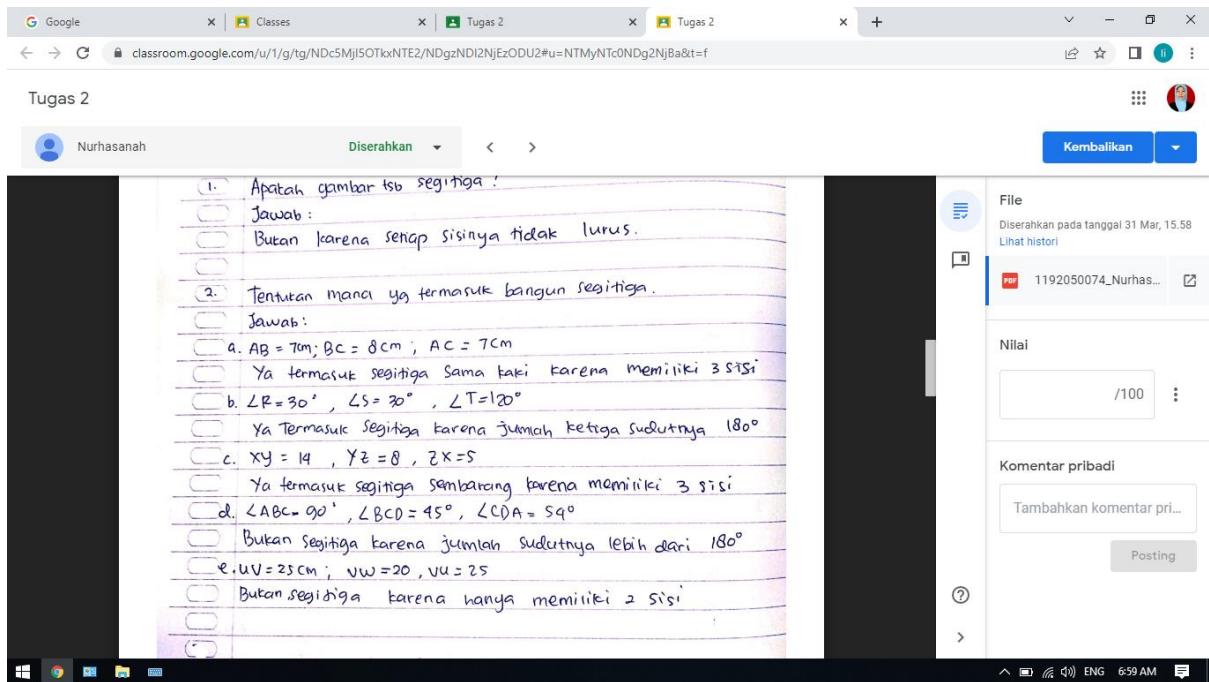 Google
Classes
Tugas 2
Tugas 2
classroom.google.com/u/1/g/tg/NDc5MjI5OTkxNTE2/NDgzNDI2NjEzODU2#u=NTMyNTc0NDg2NjBa&t=f
Tugas 2
Nurhasanah
Diserahkan
Kembalikan
1. Apakah gambar tsb segitiga?
Jawab :
Bukan karena setiap sisinya tidak lurus.
2. Tentukan mana yg termasuk bangun segitiga.
Jawab :
a. AB = 7cm; BC = 8cm ; AC = 7cm
Ya termasuk segitiga sama kaki karena memiliki 3 sisi
b. ∠R = 30° , ∠S = 30° , ∠T = 120°
Ya Termasuk segitiga karena jumlah ketiga sudutnya 180°
c. XY = 14 , YZ = 8 , ZX = 5
Ya termasuk segitiga sembarang karena memiliki 3 sisi
d. ∠ABC = 90° , ∠BCD = 45° , ∠CDA = 54°
Bukan segitiga karena jumlah sudutnya lebih dari 180°
e. UV = 25 cm ; VW = 20 , VU = 25
Bukan segitiga karena hanya memiliki 2 sisi
File
Diserahkan pada tanggal 31 Mar, 15.58
Lihat histori
PDF 1192050074_Nurhas...
Nilai
/100
Komentar pribadi
Tambahkan komentar pri...
Posting
ENG 6:59 AM